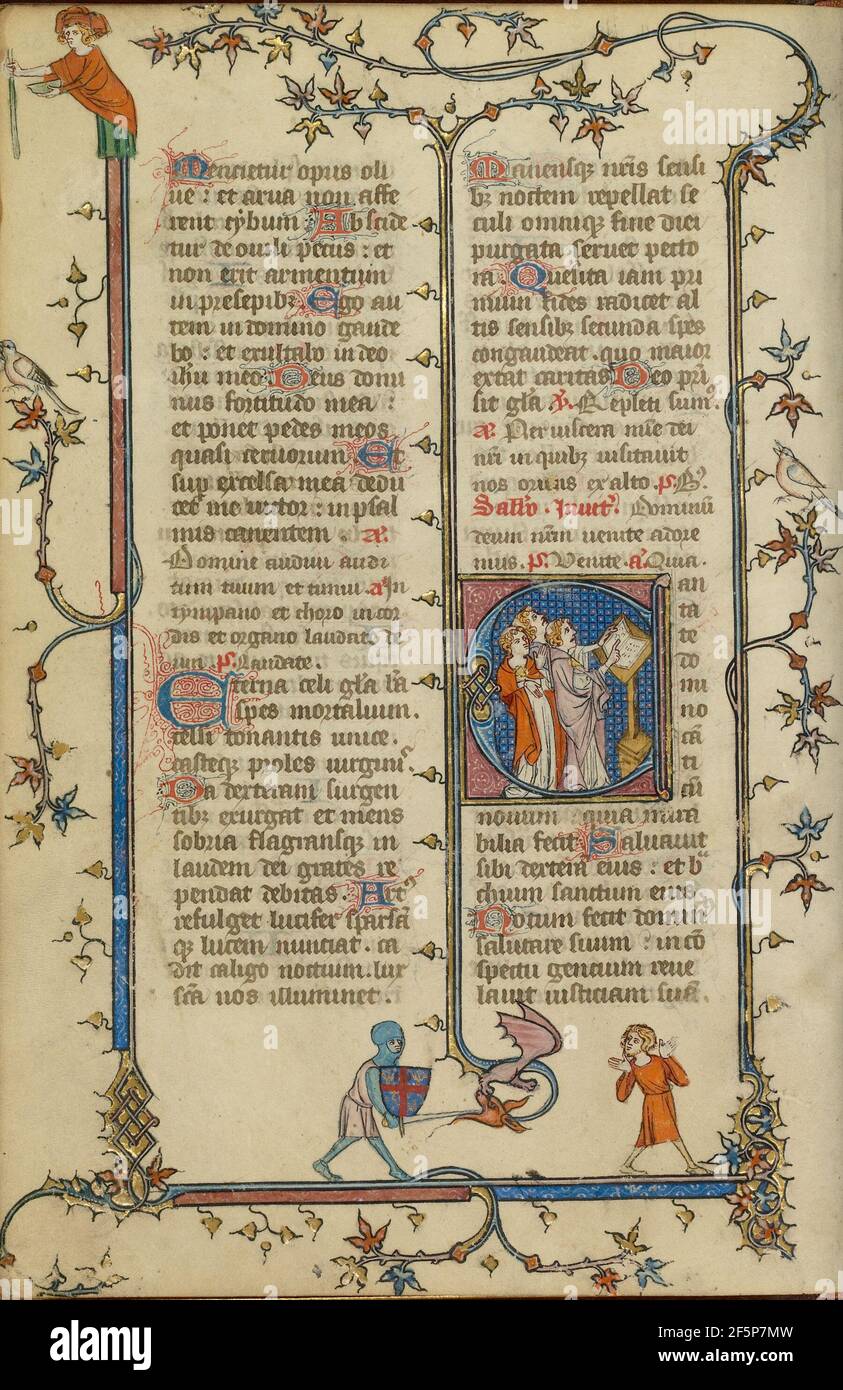 Mencietur opus oli
ue : et arua non affe
rent cybum. Abscide
tur de ouili pecus : et
non erit armentum
in presepibꝫ. Ego au
tem in domino gaude
bo : et exultabo in deo
ihu meo. Deus domi
nus fortitudo mea :
et ponet pedes meos
quasi ceruorum. Et
sup excelsa mea dedu
cet me uictor : in psal
mis canentem. a.
Domine audiui audi
tum tuum et timui. a. In
tympano et choro in cor
dis et organo laudate de
um. ps. Laudate.
Eterna celi gła bta
spes mortalium.
celsi tonantis unice.
casteqꝫ proles uirginis.
Da dexteram surgen
tibꝫ exurgat et mens
sobria flagransqꝫ in
laudem dei grates re
pendat debitas. Ort
refulget lucifer sparsā
qꝫ lucem nunciat. ca
dit caligo noctium. lux
scā nos illuminet.
Manensqꝫ nr̄is sensi
bꝫ noctem repellat se
culi omniqꝫ fine diei
purgata seruet pecto
ra. Quesita iam pri
mum fides radicet al
tis sensibꝫ secunda spes
congaudeat. quo maior
extat caritas. Deo pr̄i
sit gła. v. Repleti sumꝰ.
a. Per uiscera mīe dei
nr̄i in quibꝫ uisitauit
nos oriens ex alto. ps. B.
Sabb̄o. Inuit. Dominū
deum nr̄m uenite adore
mus. ps. Venite. a. Quia.
C an
ta
te
do
mi
no
cā
ti
cū
nouum : quia mira
bilia fecit. Saluauit
sibi dextera eius : et b
chium sanctum eius.
Notum fecit domin
salutare suum : in cō
spectu gencium reue
lauit iusticiam suā.
alamy
Image ID: 2F5P7MW
www.alamy.com